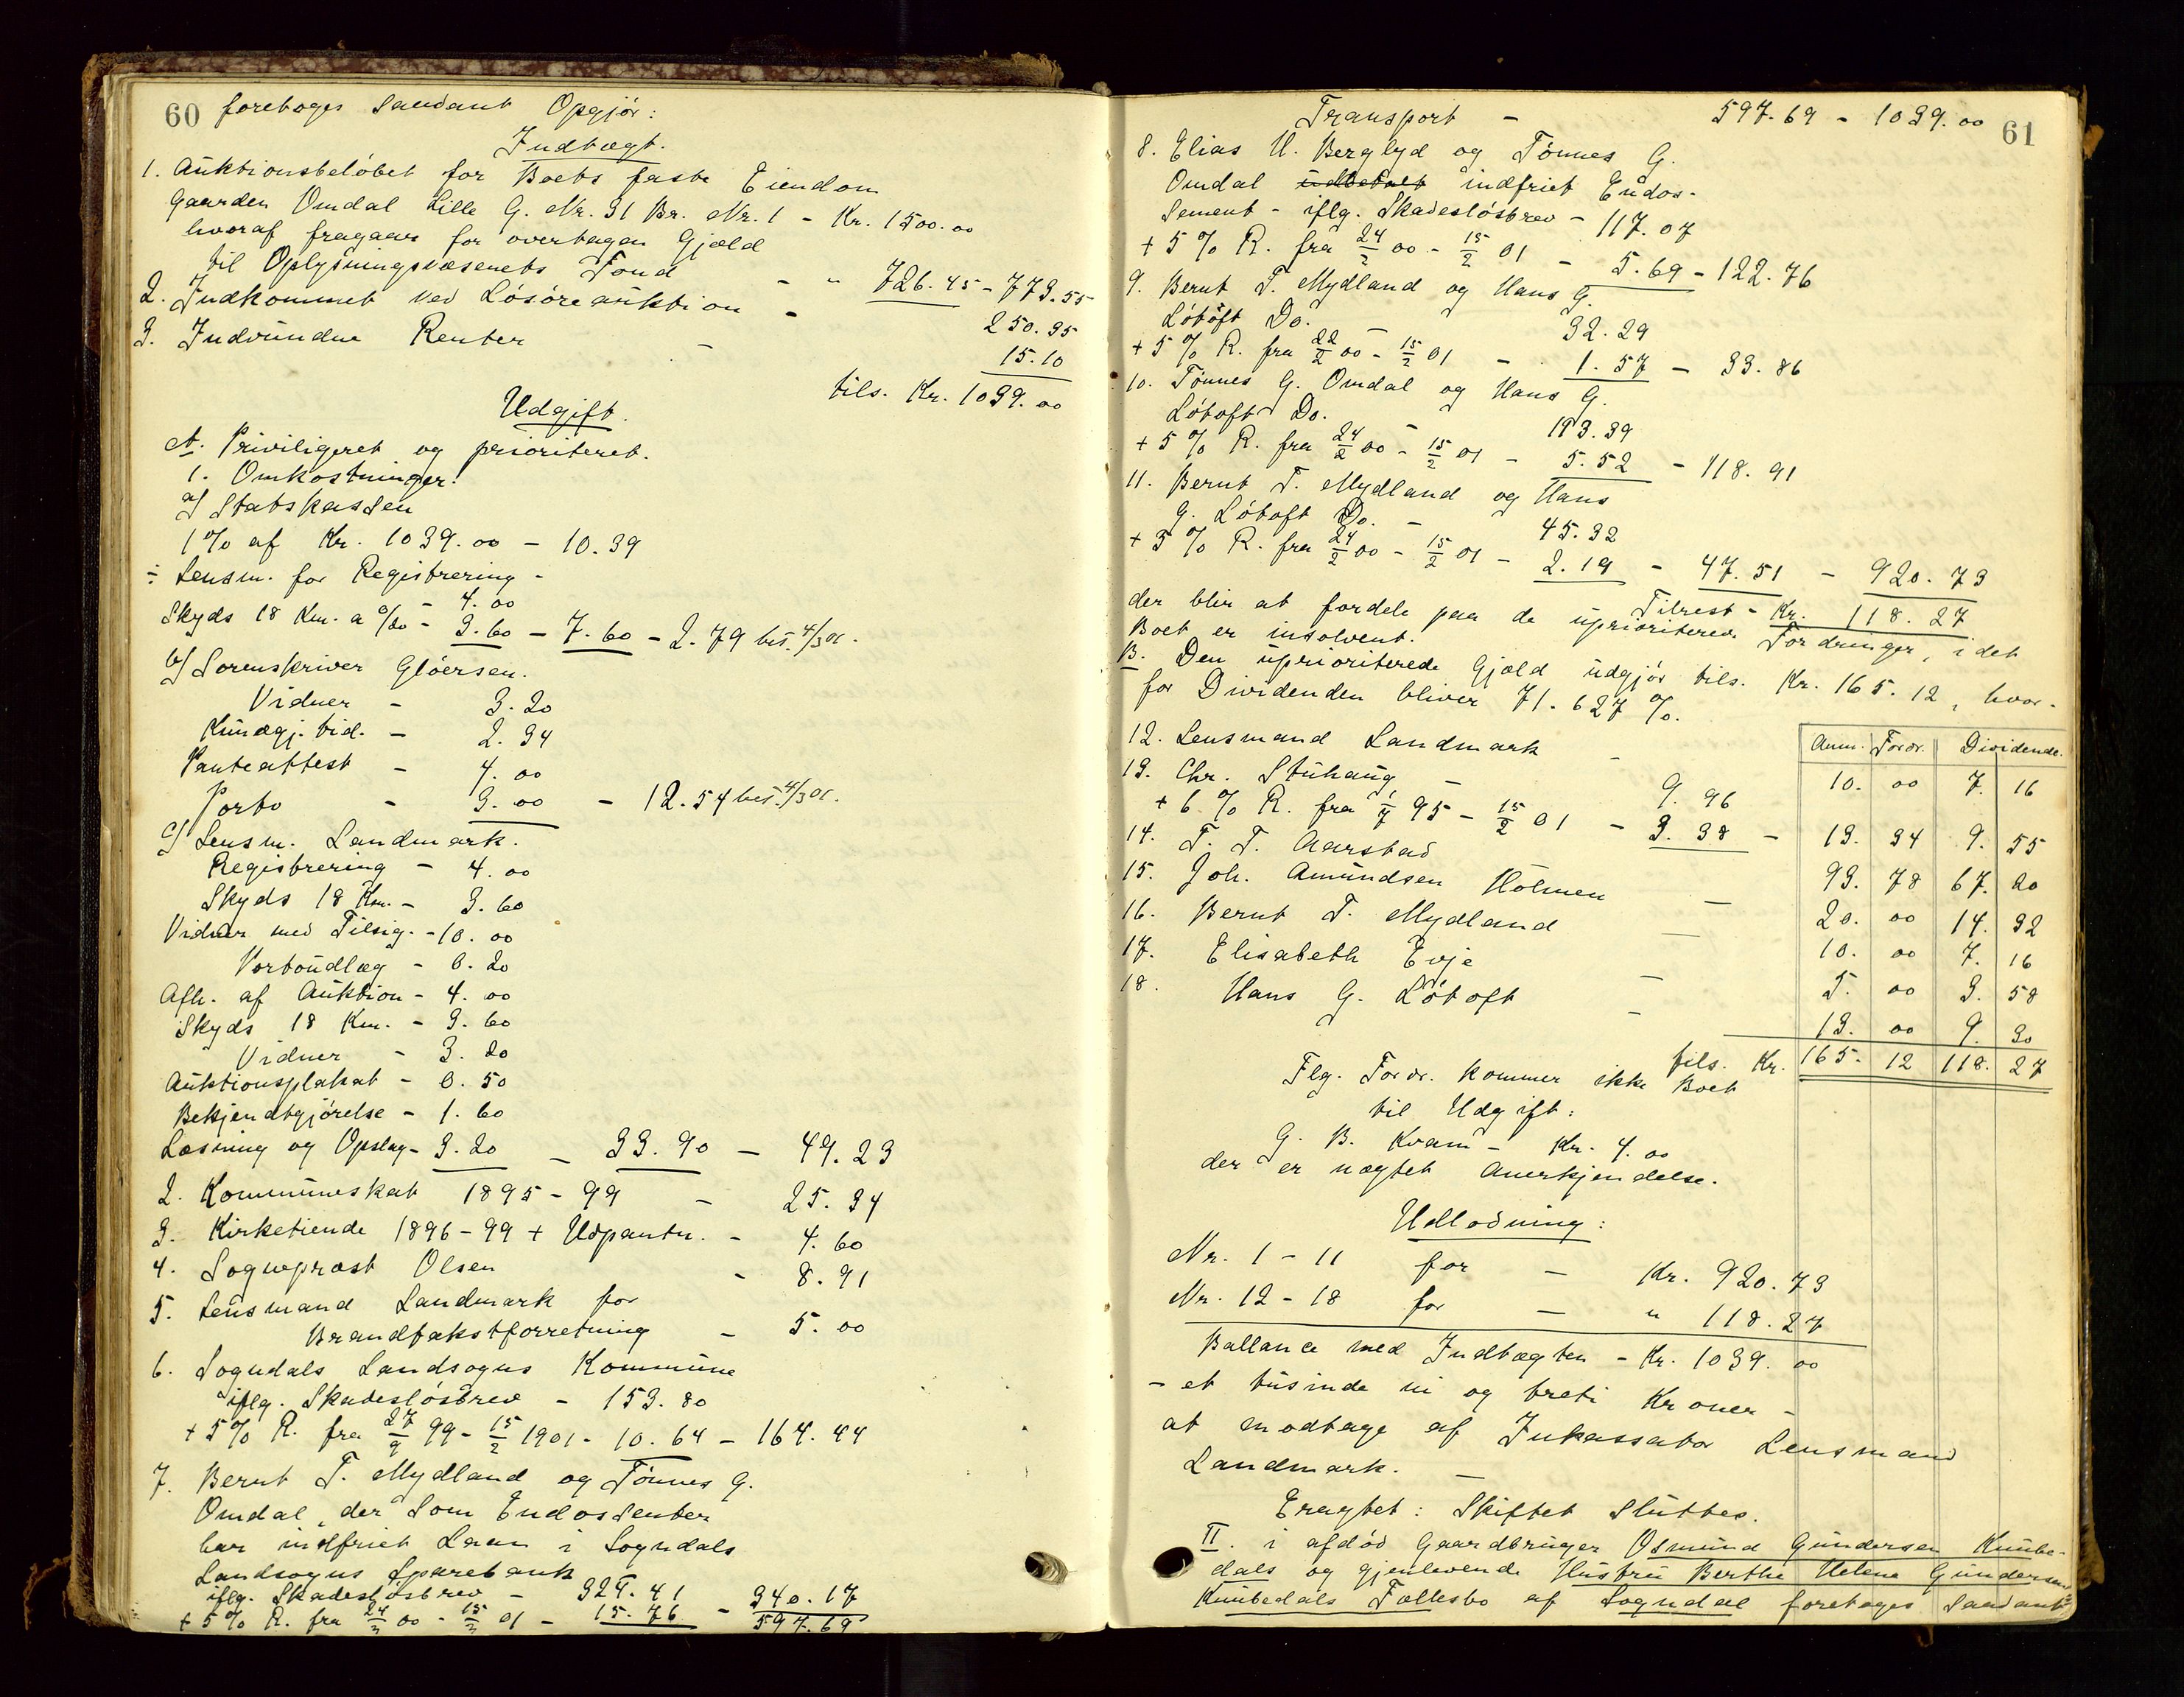 60 foretoges saadant Opgjör:
Indtægt.
1. Auktionsbelöbet for Boets faste Eiendom
Gaarden Omdal Lille G. Nr. 31 Br. Nr. 1 - Kr. 1500.00
hvoraf fragaar for overtagen Gjæld
til Oplysningsvæsenets Fond - " 726.45 - 773.55
2. Indkommet ved Lösöreauktion - 250.35
3. Indvundne Renter - 15.10
tils. Kr. 1039.00
Udgift.
A. Priviligeret og prioriteret.
1. Omkostninger:
a/ Statskassen
1% af Kr. 1039.00 - 10.39
÷ Lensm. for Registrering -
4.00
Skyds 18 Km. a 0/20 - 3.60 - 7.60 - 2.79 bet. 4/3 01.
b/ Sorenskriver Glöersen.
Vidner - 3.20
Kundgj. tid. - 2.34
Panteattest - 4.00
Porto - 3.00 - 12.54 bet. 4/3 01.
c/ Lensm. Landmark.
Registrering - 4.00
Skyds 18 Km. - 3.60
Vidner med Tilsig. - 10.00
Portoudlæg - 0.20
Afh. af Auktion - 4.00
Skyds 18 Km. - 3.60
Vidner - 3.20
Auktionsplakat - 0.50
Bekjendtgjörelse - 1.60
Læsning og Opslag - 3.20 - 33.90 - 49.23
2. Kommuneskat 1895-99 - 25.34
3. Kirketiende 1896-99 + Udpantn. - 4.60
4. Sogneprest Olsen - 8.91
5. Lensmand Landmark for
Brandtakstforretning - 5.00
6. Sogndals Landsogns Kommune
iflg. Skadeslösbrev - 153.80
+ 5% R. fra 27/9 99 - 15/2 1901 - 10.64 - 164.44
7. Bernt T. Mydland og Tönnes G.
Omdal, der som Endossenter
har indfriet Laan i Sogndals
Landsogns Sparebank
iflg. Skadeslösbrev - 324.41
+ 5% R. fra 24/2 00 - 15/2 01 - 15.76 - 340.17
597.69
Transport - 597.69 - 1039.00 61
8. Elias U. Berglyd og Tönnes G.
Omdal udbetalt indfriet Endos-
sement - iflg. Skadeslösbrev - 117.07
+ 5% R. fra 24/2 00 - 15/2 01 - 5.69 - 122.76
9. Bernt T. Mydland og Hans G.
Lötoft Do. - 32.29
+ 5% R. fra 22/2 00 - 15/2 01 - 1.57 - 33.86
10. Tönnes G. Omdal og Hans G.
Lötoft Do. - 113.39
+ 5% R. fra 24/2 00 - 15/2 01 - 5.52 - 118.91
11. Bernt T. Mydland og Hans
G. Lötoft Do. - 45.32
+ 5% R. fra 24/2 00 - 15/2 01 - 2.19 - 47.51 - 920.73
Tilrest - Kr. 118.27
der blir at fordele paa de uprioriterede Fordringer, idet
Boet er insolvent.
B. Den uprioriterede Gjæld udgjör tils. Kr. 165.12, hvor-
for Dividenden bliver 71.627 %.
Anm. Fordr. Dividende.
12. Lensmand Landmark - 10.00 7.16
13. Chr. Stuhaug - 9.96
+ 6% R. fra 1/7 95 - 15/2 01 - 3.38 - 13.34 9.55
14. T. T. Aarstad 93.78 67.20
15. Joh. Amundsen Holmen - 20.00 14.32
16. Bernt T. Mydland - 10.00 7.16
17. Elisabeth Evje - 5.00 3.58
18. Hans G. Lötoft - 13.00 9.30
tils. Kr. 165.12 118.27
Flg. Fordr. kommer ikke Boet
til Udgift:
G. B. Kvam - Kr. 4.00
der er nægtet Anerkjendelse.
Udlodning:
Nr. 1 - 11 for - Kr. 920.73
Nr. 12 - 18 for - " 118.27
Ballance med Indtægten - Kr. 1039.00
- et tusinde ni og treti Kroner -
at modtage af Inkassator Lensmand
Landmark. -
Eragtet: Skiftet sluttes.
II. i afdöd Gaardbruger Osmund Gundersen Knube-
dals og gjenlevende Hustru Berthe Helene Gundersen
Knubedals Fællesbo af Sogndal foretoges saadant